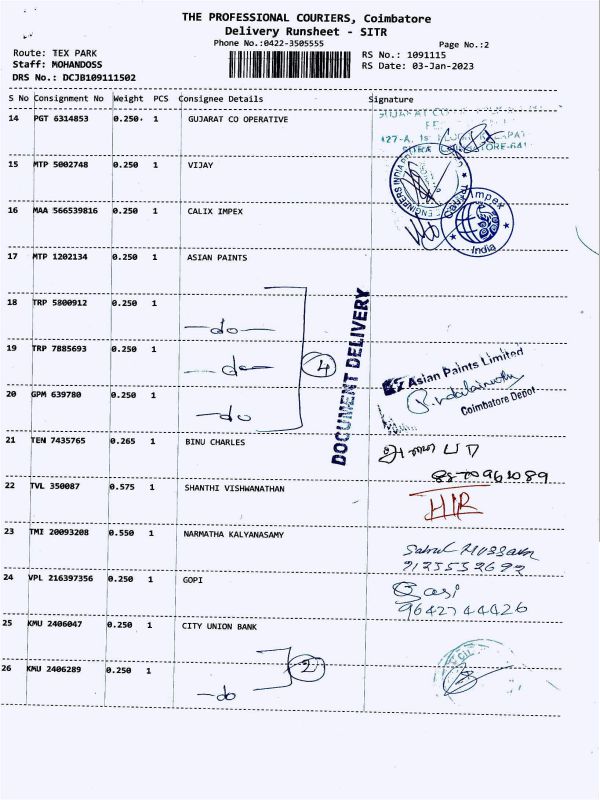 THE PROFESSIONAL COURIERS, Coimbatore
Delivery Runsheet - SITR
Phone No.:0422-3505555
Page No.:2
Route: TEX PARK
Staff: MOHANDOSS
DRS No.: DCJB109111502
RS No.: 1091115
RS Date: 03-Jan-2023
S No Consignment No Weight PCS Consignee Details Signature
14 PGT 6314853 0.250 1 GUJARAT CO OPERATIVE
15 MTP 5002748 0.250 1 VIJAY
ENGINEERS INDIA
16 MAA 566539816 0.250 1 CALIX IMPEX
Calix Impex
India
17 MTP 1202134 0.250 1 ASIAN PAINTS
18 TRP 5800912 0.250 1 —do—
19 TRP 7885693 0.250 1 —do—
4
DOCUMENT DELIVERY
Asian Paints Limited
Coimbatore Depot
20 GPM 639780 0.250 1 —do
21 TEN 7435765 0.265 1 BINU CHARLES
22 TVL 350087 0.575 1 SHANTHI VISHWANATHAN
23 TMI 20093208 0.550 1 NARMATHA KALYANASAMY
24 VPL 216397356 0.250 1 GOPI
9642744426
25 KMU 2406047 0.250 1 CITY UNION BANK
2
26 KMU 2406289 0.250 1 —do